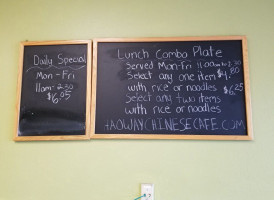 Daily Special
Mon - Fri
11am - 2:30
$6.95
Lunch Combo Plate
Served Mon-Fri 11:00am to 2:30
Select any one item $4.80
with rice or noodles
Select any two items $6.25
with rice or noodles
TAOWAYCHINESECAFE.COM